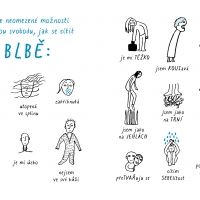 e neomezené možnosti
ou svobodu, jak se cítit
BLBĚ:
utopená
ve splínu
zatvrdlá
je mi úzko
nejsem
ve své kůži
je mi TĚŽKO
jsem jako
na JEHLÁCH
PŘETVAŘUJU se
jsem ROZTAVÁ
jsem jako
na TRNÍ
cítím
SEBELÍTOST